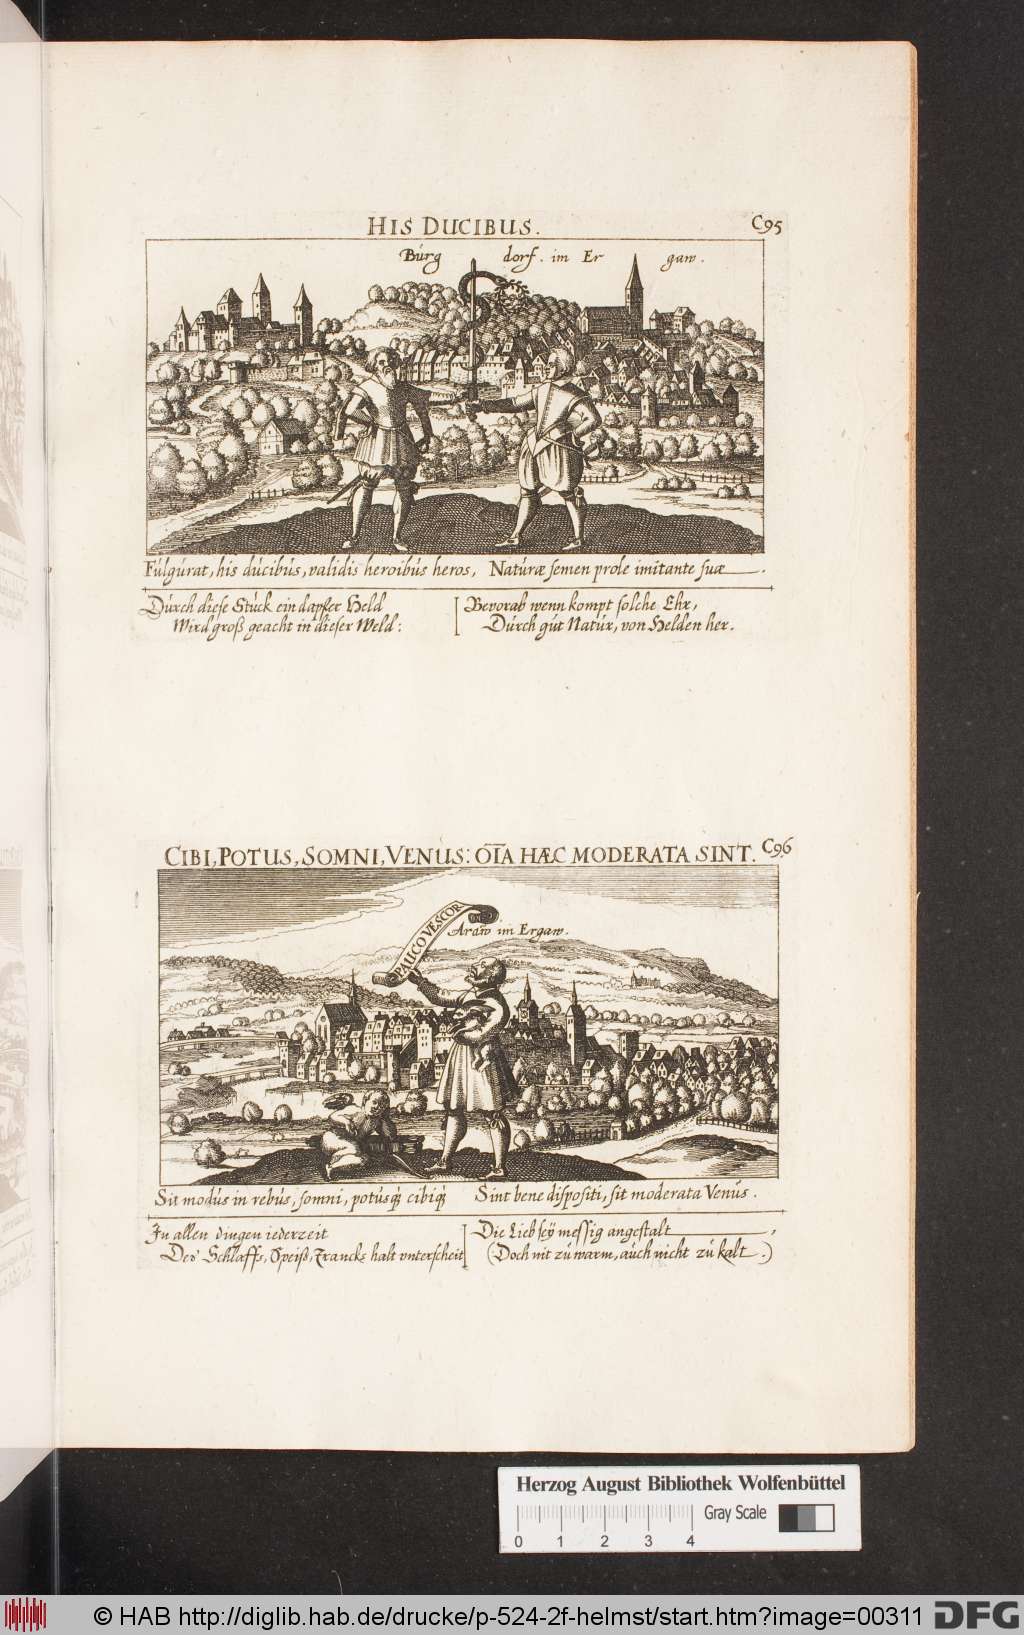 HIS DUCIBUS.
C95
Búrg dorf. im Er gaw.
Fúlgúrat, his dúcibús, validis heroibús heros, Natúræ semen prole imitante suæ.
Dúrch diese Stúck ein dapfer Held
Wird groß geacht in dieser Weld:
Bevorab wenn kompt solche Ehr,
Dúrch gút Natúr, von Helden her.
CIBI, POTUS, SOMNI, VENUS: OĪA HÆC MODERATA SINT.
C96
PAUCO VESCOR.
Araw im Ergaw.
Sit modús in rebús, somni, potúsq́ cibiq́ Sint bene dispositi, sit moderata Venús.
In allen dingen iederzeit
Des Schlaffs, Speiß, Trancks halt vnterscheit
Die Lieb seÿ messig angestalt,
(Doch nit zú warm, aúch nicht zú kalt.)
Herzog August Bibliothek Wolfenbüttel
0 1 2 3 4 Gray Scale
© HAB http://diglib.hab.de/drucke/p-524-2f-helmst/start.htm?image=00311 DFG